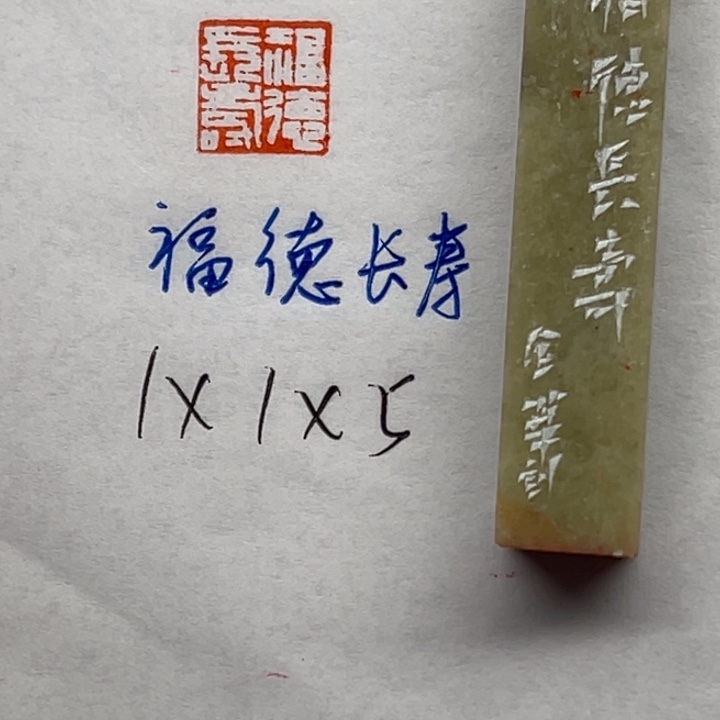 福德長壽
福德长寿
1X1X5
福德長壽